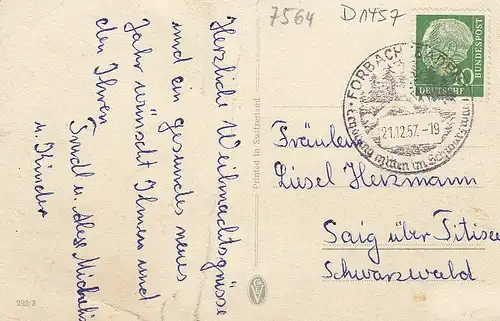 7564
D 1457
Herzliche Weihnachtsgrüsse
und ein gesundes neues
Jahr wünscht Ihnen und
den Ihren
Trudl u.
u. Kinder
292/3
Printed in Switzerland
FORBACH
21.12.57.-19
mitten im
10
DEUTSCHE
BUNDESPOST
Fräulein
Liesel Herzmann
Saig über Titisee
Schwarzwald